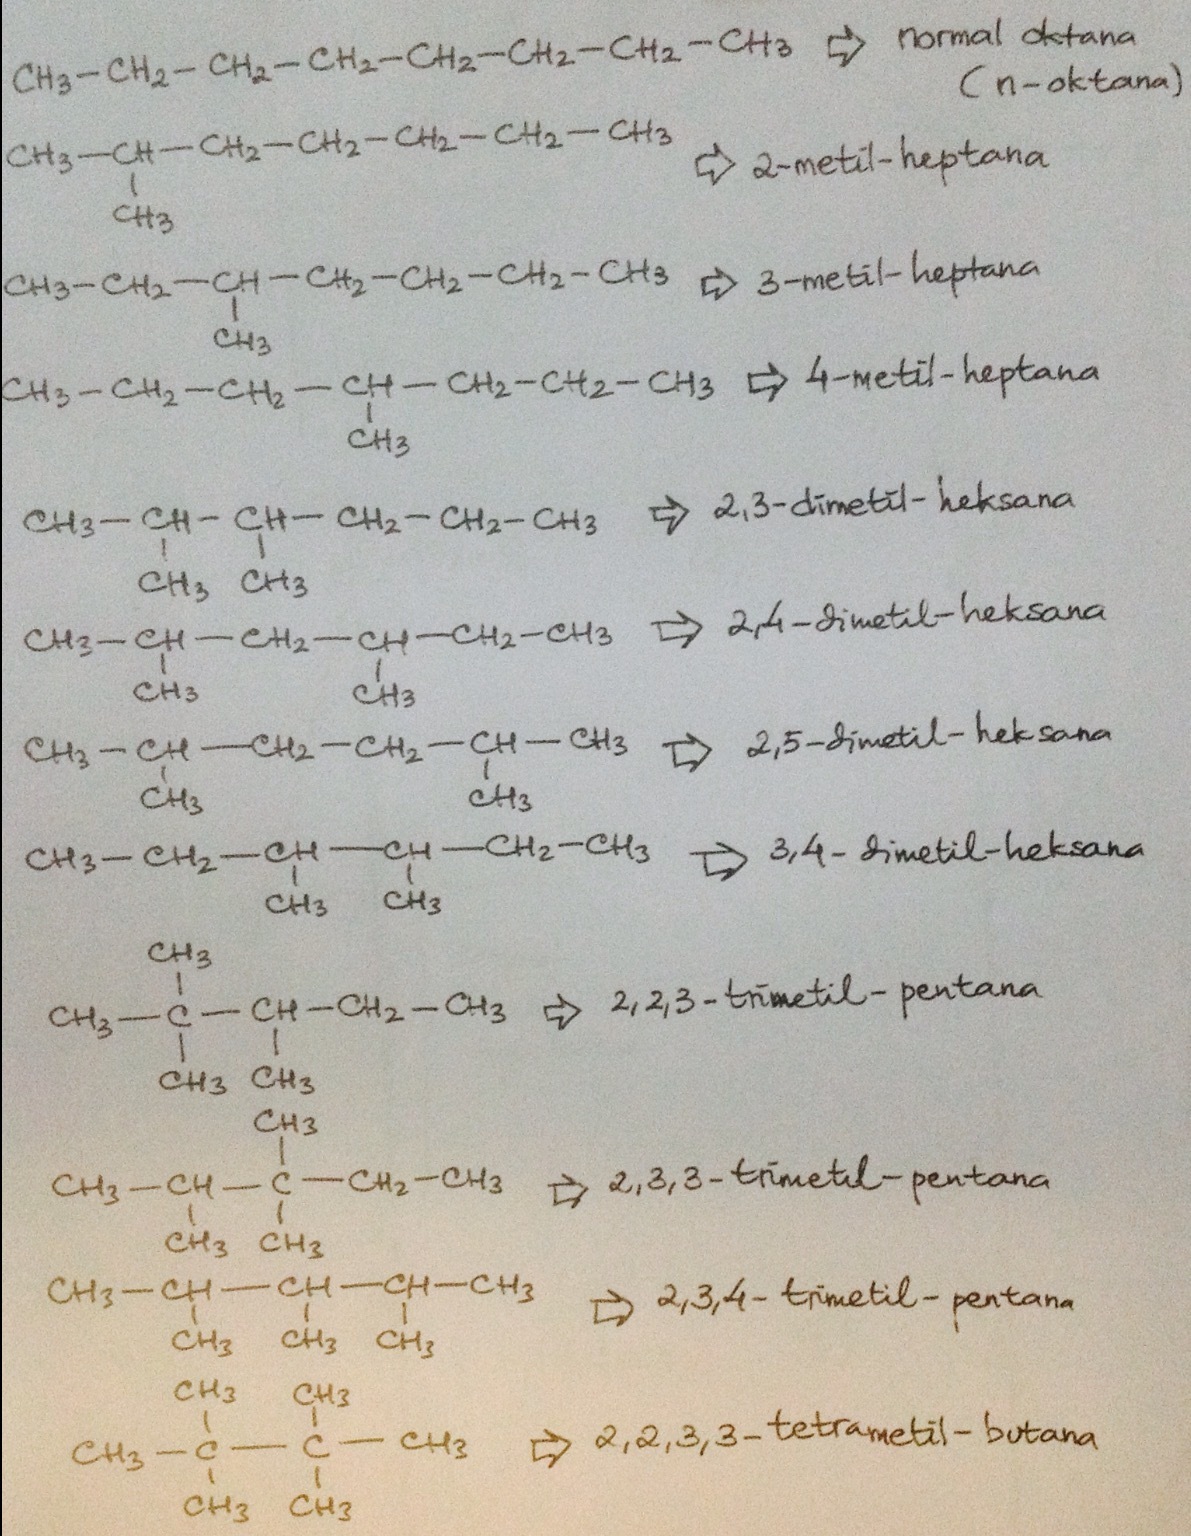 CH3-CH2-CH2-CH2-CH2-CH2-CH2-CH3 ⇨ normal oktana
(n-oktana)
CH3-CH-CH2-CH2-CH2-CH2-CH3 ⇨ 2-metil-heptana
CH3
CH3-CH2-CH-CH2-CH2-CH2-CH3 ⇨ 3-metil-heptana
CH3
CH3-CH2-CH2-CH-CH2-CH2-CH3 ⇨ 4-metil-heptana
CH3
CH3-CH-CH-CH2-CH2-CH3 ⇨ 2,3-dimetil-heksana
CH3 CH3
CH3-CH-CH2-CH-CH2-CH3 ⇨ 2,4-dimetil-heksana
CH3 CH3
CH3-CH-CH2-CH2-CH-CH3 ⇨ 2,5-dimetil-heksana
CH3 CH3
CH3-CH2-CH-CH-CH2-CH3 ⇨ 3,4-dimetil-heksana
CH3 CH3
CH3
CH3-C-CH-CH2-CH3 ⇨ 2,2,3-trimetil-pentana
CH3 CH3
CH3
CH3-CH-C-CH2-CH3 ⇨ 2,3,3-trimetil-pentana
CH3 CH3
CH3-CH-CH-CH-CH3 ⇨ 2,3,4-trimetil-pentana
CH3 CH3 CH3
CH3 CH3
CH3-C-C-CH3 ⇨ 2,2,3,3-tetrametil-butana
CH3 CH3